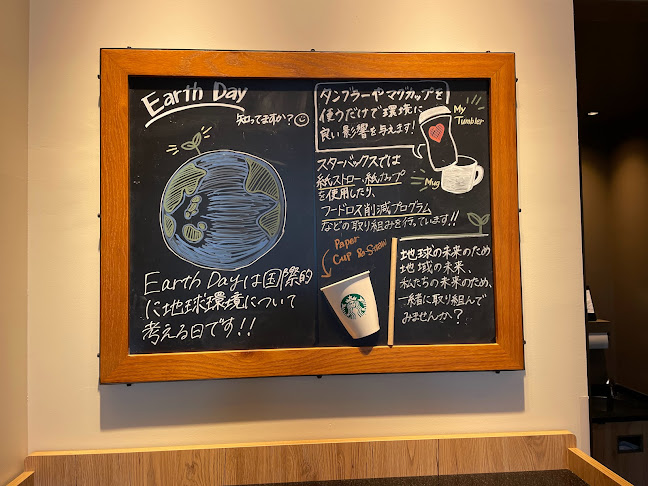 Earth Day
知ってますか?
Earth Dayは国際的
に地球環境について
考える日です!!
タンブラーやマグカップを
使うだけで環境に
良い影響を与えます!
My
Tumbler
Mug
スターバックスでは
紙ストロー、紙カップ
を使用したり、
フードロス削減プログラム
などの取り組みを行っています!!
Paper
Cup &
地球の未来のため
地域の未来、
私たちの未来のため、
一緒に取り組んで
みませんか?